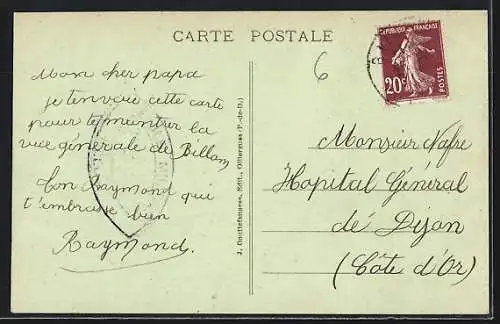 CARTE POSTALE
Mon cher papa
je t'envoie cette carte
pour te montrer la
vue générale de Billom
Ton Raymond qui
t'embrasse bien
Raymond.
J. Gouttefangeas, Édit., Olliergues (P.-de-D.)
6
RÉPUBLIQUE FRANÇAISE
20c
POSTES
Monsieur
Hopital Général
de Dijon
(Côte d'Or)